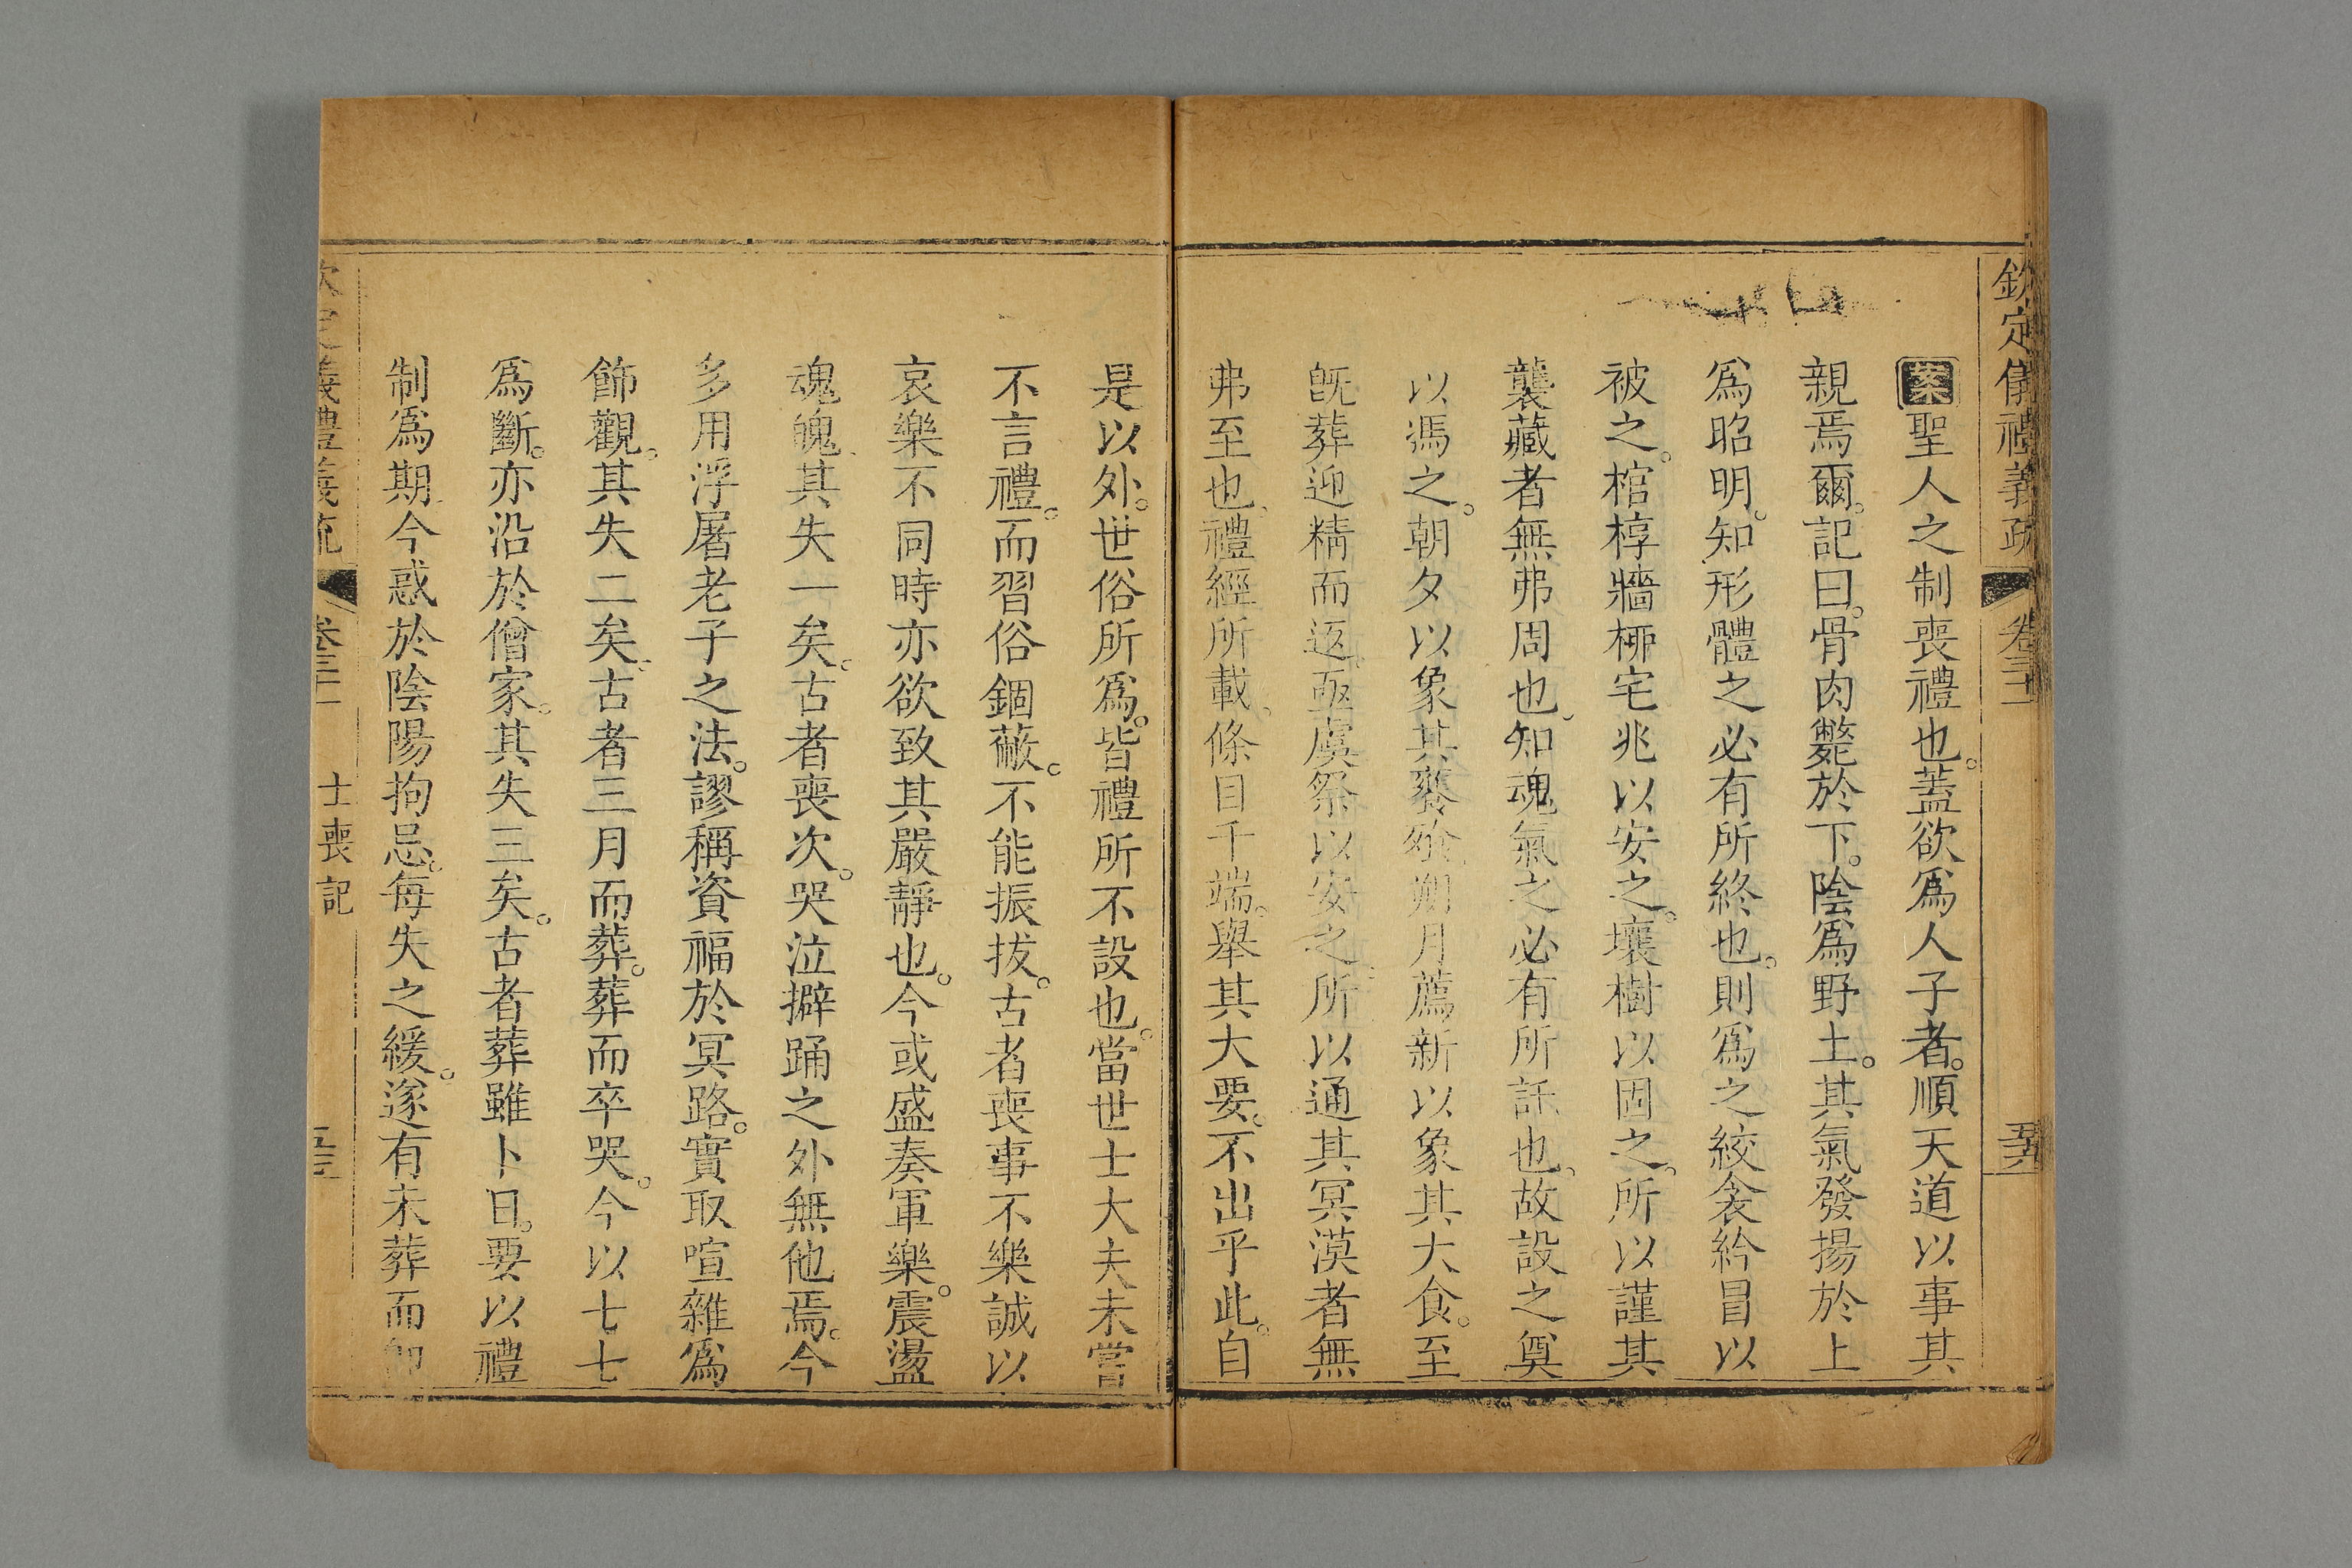 欽定儀禮義疏 卷三十二
案聖人之制喪禮也。蓋欲爲人子者。順天道以事其
親焉爾。記曰。骨肉斃於下。陰爲野土。其氣發揚於上
爲昭明。知形體之必有所終也。則爲之絞衾紟冒以
被之。棺椁牆柳宅兆以安之。壤樹以固之。所以謹其
襲藏者無弗周也。知魂氣之必有所託也。故設之奠
以馮之。朝夕以象其饔飱。朔月薦新以象其大食。至
旣葬迎精而返。亟虞祭以安之。所以通其冥漠者無
弗至也。禮經所載。條目千端。舉其大要。不出乎此。自
是以外。世俗所爲。皆禮所不設也。當世士大夫未嘗
不言禮。而習俗錮蔽。不能振拔。古者喪事不樂誠以
哀樂不同時亦欲致其嚴靜也。今或盛奏軍樂。震盪
魂魄。其失一矣。古者喪次。哭泣擗踊之外無他焉。今
多用浮屠老子之法。謬稱資福於冥路。實取喧雜爲
飾觀。其失二矣。古者三月而葬。葬而卒哭。今以七七
爲斷。亦沿於僧家。其失三矣。古者葬雖卜日。要以禮
制爲期。今惑於陰陽拘忌。每失之緩。遂有未葬而卽
義禮義疏 卷三十二 士喪記